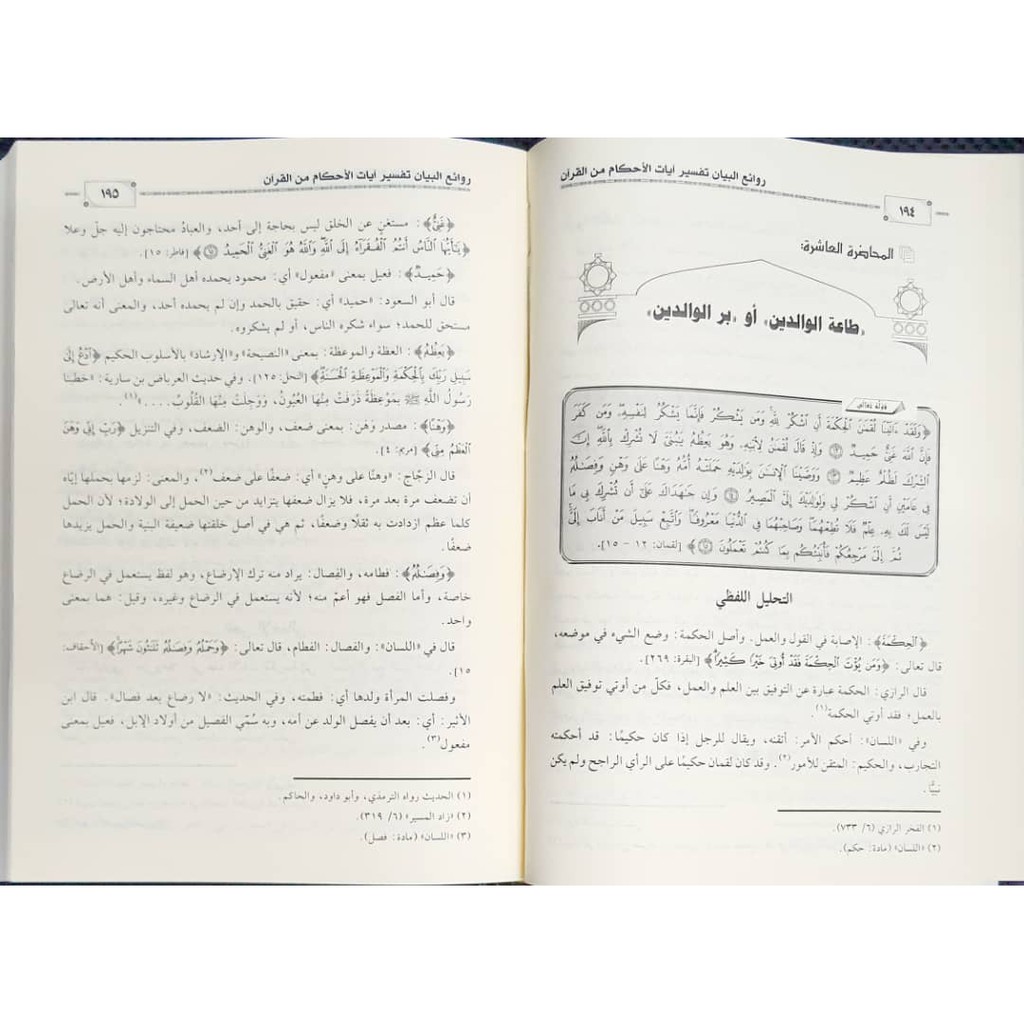 روائع البيان تفسير آيات الأحكام من القرآن
١٩٤
المحاضرة العاشرة:
«طاعة الوالدين» أو «بر الوالدين»
قوله تعالى
﴿وَلَقَدْ ءَانَيْنَا لُقْمَٰنَ ٱلْحِكْمَةَ أَنِ ٱشْكُرْ لِلَّهِ وَمَن يَشْكُرْ فَإِنَّمَا يَشْكُرُ لِنَفْسِهِۦ وَمَن كَفَرَ
فَإِنَّ ٱللَّهَ غَنِىٌّ حَمِيدٌ ۝١٢ وَإِذْ قَالَ لُقْمَٰنُ لِٱبْنِهِۦ وَهُوَ يَعِظُهُۥ يَٰبُنَىَّ لَا تُشْرِكْ بِٱللَّهِ إِنَّ
ٱلشِّرْكَ لَظُلْمٌ عَظِيمٌ ۝١٣ وَوَصَّيْنَا ٱلْإِنسَٰنَ بِوَٰلِدَيْهِ حَمَلَتْهُ أُمُّهُۥ وَهْنًا عَلَىٰ وَهْنٍ وَفِصَٰلُهُۥ
فِى عَامَيْنِ أَنِ ٱشْكُرْ لِى وَلِوَٰلِدَيْكَ إِلَىَّ ٱلْمَصِيرُ ۝١٤ وَإِن جَٰهَدَاكَ عَلَىٰٓ أَن تُشْرِكَ بِى مَا
لَيْسَ لَكَ بِهِۦ عِلْمٌ فَلَا تُطِعْهُمَا وَصَاحِبْهُمَا فِى ٱلدُّنْيَا مَعْرُوفًا وَٱتَّبِعْ سَبِيلَ مَنْ أَنَابَ إِلَىَّ
ثُمَّ إِلَىَّ مَرْجِعُكُمْ فَأُنَبِّئُكُم بِمَا كُنتُمْ تَعْمَلُونَ ۝١٥﴾ [لقمان: ١٢ - ١٥].
التحليل اللفظي
﴿ٱلْحِكْمَةَ﴾: الإصابة في القول والعمل. وأصل الحكمة: وضع الشيء في موضعه،
قال تعالى: ﴿وَمَن يُؤْتَ ٱلْحِكْمَةَ فَقَدْ أُوتِىَ خَيْرًا كَثِيرًا﴾ [البقرة: ٢٦٩].
قال الرازي: الحكمة عبارة عن التوفيق بين العلم والعمل، فكلّ من أوتي توفيق العلم
بالعمل؛ فقد أوتي الحكمة(١).
وفي «اللسان»: أحكم الأمر: أتقنه، ويقال للرجل إذا كان حكيمًا: قد أحكمته
التجارب، والحكيم: المتقن للأمور(٢). وقد كان لقمان حكيمًا على الرأي الراجح ولم يكن
نبيًّا.
(١) الفخر الرازي (٦/ ٧٣٣).
(٢) «اللسان» (مادة: حكم).
روائع البيان تفسير آيات الأحكام من القرآن
١٩٥
﴿غَنِىٌّ﴾: مستغنٍ عن الخلق ليس بحاجة إلى أحد، والعبادُ محتاجون إليه جلّ وعلا
﴿يَٰٓأَيُّهَا ٱلنَّاسُ أَنتُمُ ٱلْفُقَرَآءُ إِلَى ٱللَّهِ وَٱللَّهُ هُوَ ٱلْغَنِىُّ ٱلْحَمِيدُ ۝١٥﴾ [فاطر: ١٥].
﴿حَمِيدٌ﴾: فعيل بمعنى «مفعول» أي: محمود يحمده أهل السماء وأهل الأرض.
قال أبو السعود: «حميد» أي: حقيق بالحمد وإن لم يحمده أحد، والمعنى أنه تعالى
مستحق للحمد؛ سواء شكره الناس، أو لم يشكروه.
﴿يَعِظُهُۥ﴾: العظة والموعظة: بمعنى «النصيحة» و«الإرشاد» بالأسلوب الحكيم ﴿ٱدْعُ إِلَىٰ
سَبِيلِ رَبِّكَ بِٱلْحِكْمَةِ وَٱلْمَوْعِظَةِ ٱلْحَسَنَةِ﴾ [النحل: ١٢٥]. وفي حديث العرباض بن سارية: «خطبنا
رَسُولُ اللَّهِ ﷺ بِمَوْعِظَةٍ ذَرَفَتْ مِنْهَا العُيُونُ، وَوَجِلَتْ مِنْهَا القُلُوبُ. . . .»(١).
﴿وَهْنًا﴾: مصدر وَهَن: بمعنى ضعف، والوهن: الضعف، وفي التنزيل ﴿رَبِّ إِنِّى وَهَنَ
ٱلْعَظْمُ مِنِّى﴾ [مريم: ٤].
قال الزجّاج: «وهنًا على وهنٍ» أي: ضعفًا على ضعف(٢)، والمعنى: لزمها بحملها إيّاه
أن تضعف مرة بعد مرة، فلا يزال ضعفها يتزايد من حين الحمل إلى الولادة؛ لأن الحمل
كلما عظم ازدادت به ثقلًا وضعفًا، ثم هي في أصل خلقتها ضعيفة البنية والحمل يزيدها
ضعفًا.
﴿وَفِصَٰلُهُۥ﴾: فطامه، والفِصال: يراد منه ترك الإرضاع، وهو لفظ يستعمل في الرضاع
خاصة، وأما الفصل فهو أعمّ منه؛ لأنه يستعمل في الرضاع وغيره، وقيل: هما بمعنى
واحد.
قال في «اللسان»: والفصال: الفطام، قال تعالى: ﴿وَحَمْلُهُۥ وَفِصَٰلُهُۥ ثَلَٰثُونَ شَهْرًا﴾ [الأحقاف:
١٥].
وفصلت المرأة ولدها أي: فطمته، وفي الحديث: «لا رضاع بعد فصال». قال ابن
الأثير: أي: بعد أن يفصل الولد عن أمه، وبه سُمّي الفصيل من أولاد الإبل، فعيل بمعنى
مفعول(٣).
(١) الحديث رواه الترمذي، وأبو داود، والحاكم.
(٢) «زاد المسير» (٦/ ٣١٩).
(٣) «اللسان» (مادة: فصل).